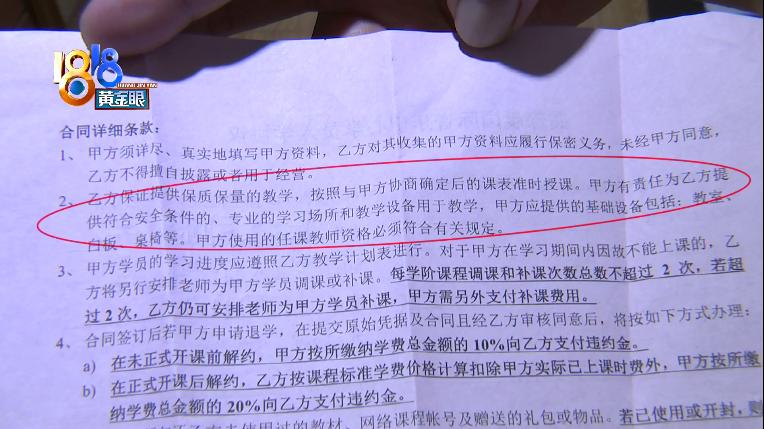 1818
HUANGJINYAN
黄金眼
合同详细条款：
1、甲方须详尽、真实地填写甲方资料，乙方对其收集的甲方资料应履行保密义务，未经甲方同意，
乙方不得擅自披露或者用于经营。
2、乙方保证提供保质保量的教学，按照与甲方协商确定后的课表准时授课。甲方有责任为乙方提
供符合安全条件的、专业的学习场所和教学设备用于教学，甲方应提供的基础设备包括：教室、
白板、桌椅等。甲方使用的任课教师资格必须符合有关规定。
3、甲方学员的学习进度应遵照乙方教学计划表进行。对于甲方在学习期间内因故不能上课的，乙
方将另行安排老师为甲方学员调课或补课。每学阶课程调课和补课次数总数不超过 2 次，若超
过 2 次，乙方仍可安排老师为甲方学员补课，甲方需另外支付补课费用。
4、合同签订后若甲方申请退学，在提交原始凭据及合同且经乙方审核同意后，将按如下方式办理：
a) 在未正式开课前解约，甲方按所缴纳学费总金额的 10%向乙方支付违约金。
b) 在正式开课后解约，乙方按课程标准学费价格计算扣除甲方实际已上课时费外，甲方按所缴
纳学费总金额的 20%向乙方支付违约金。
使用过的教材、网络课程帐号及赠送的礼包或物品。若已使用或开封，则